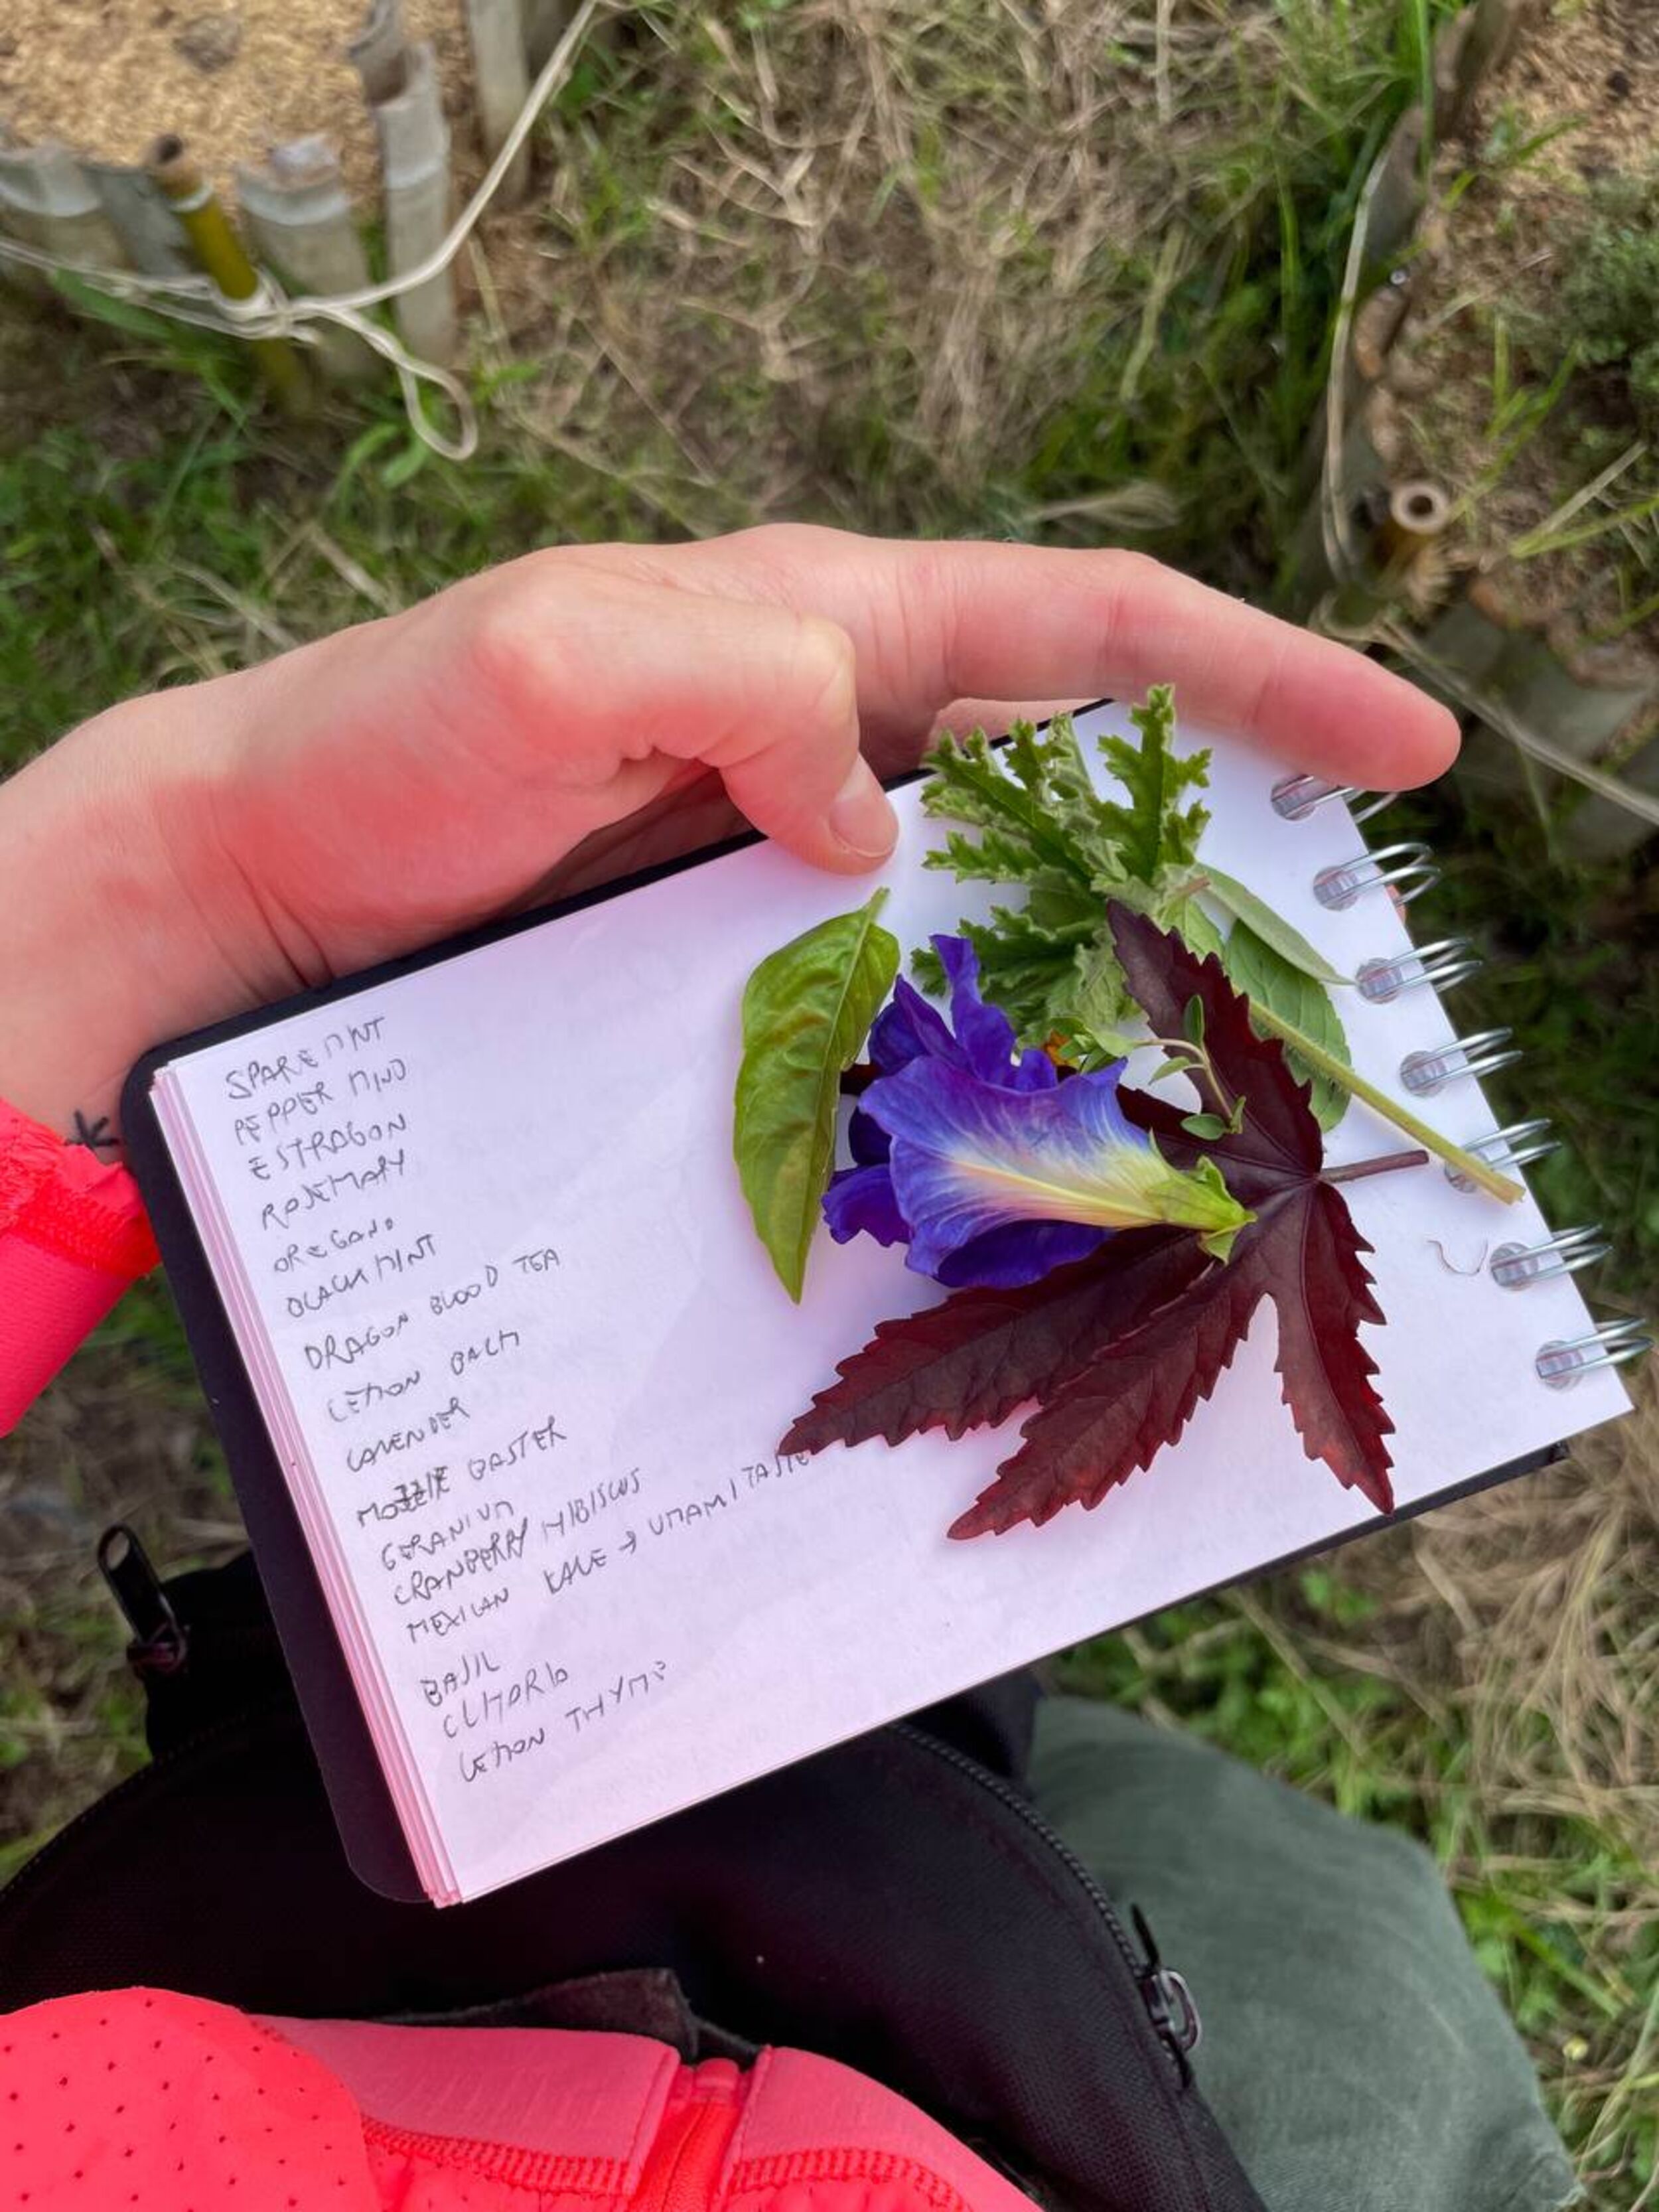 SPAREMINT
PEPPER MIND
ESTRAGON
ROSEMARY
OREGANO
BLACK MINT
DRAGON BLOOD TEA
LEMON BALM
LAVENDER
BASTER
GERANIUM
CRANBERRY HIBISCUS
MEXICAN KALE → UMAMI TASTE
BASIL
CLITORIA
LEMON THYME